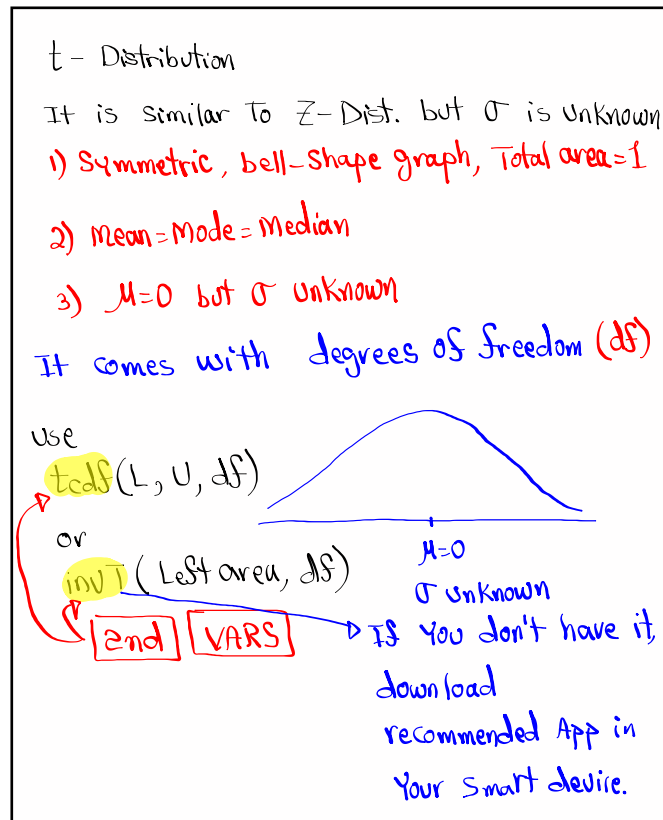 t - Distribution
It is similar To Z-Dist. but σ is unknown
1) Symmetric, bell-Shape graph, Total area=1
2) Mean=Mode=Median
3) μ=0 but σ unknown
It comes with degrees of freedom (df)
use
tcdf(L, U, df)
or
invT(Left area, df)
2nd VARS
μ=0
σ unknown
If You don't have it,
download
recommended App in
Your Smart device.